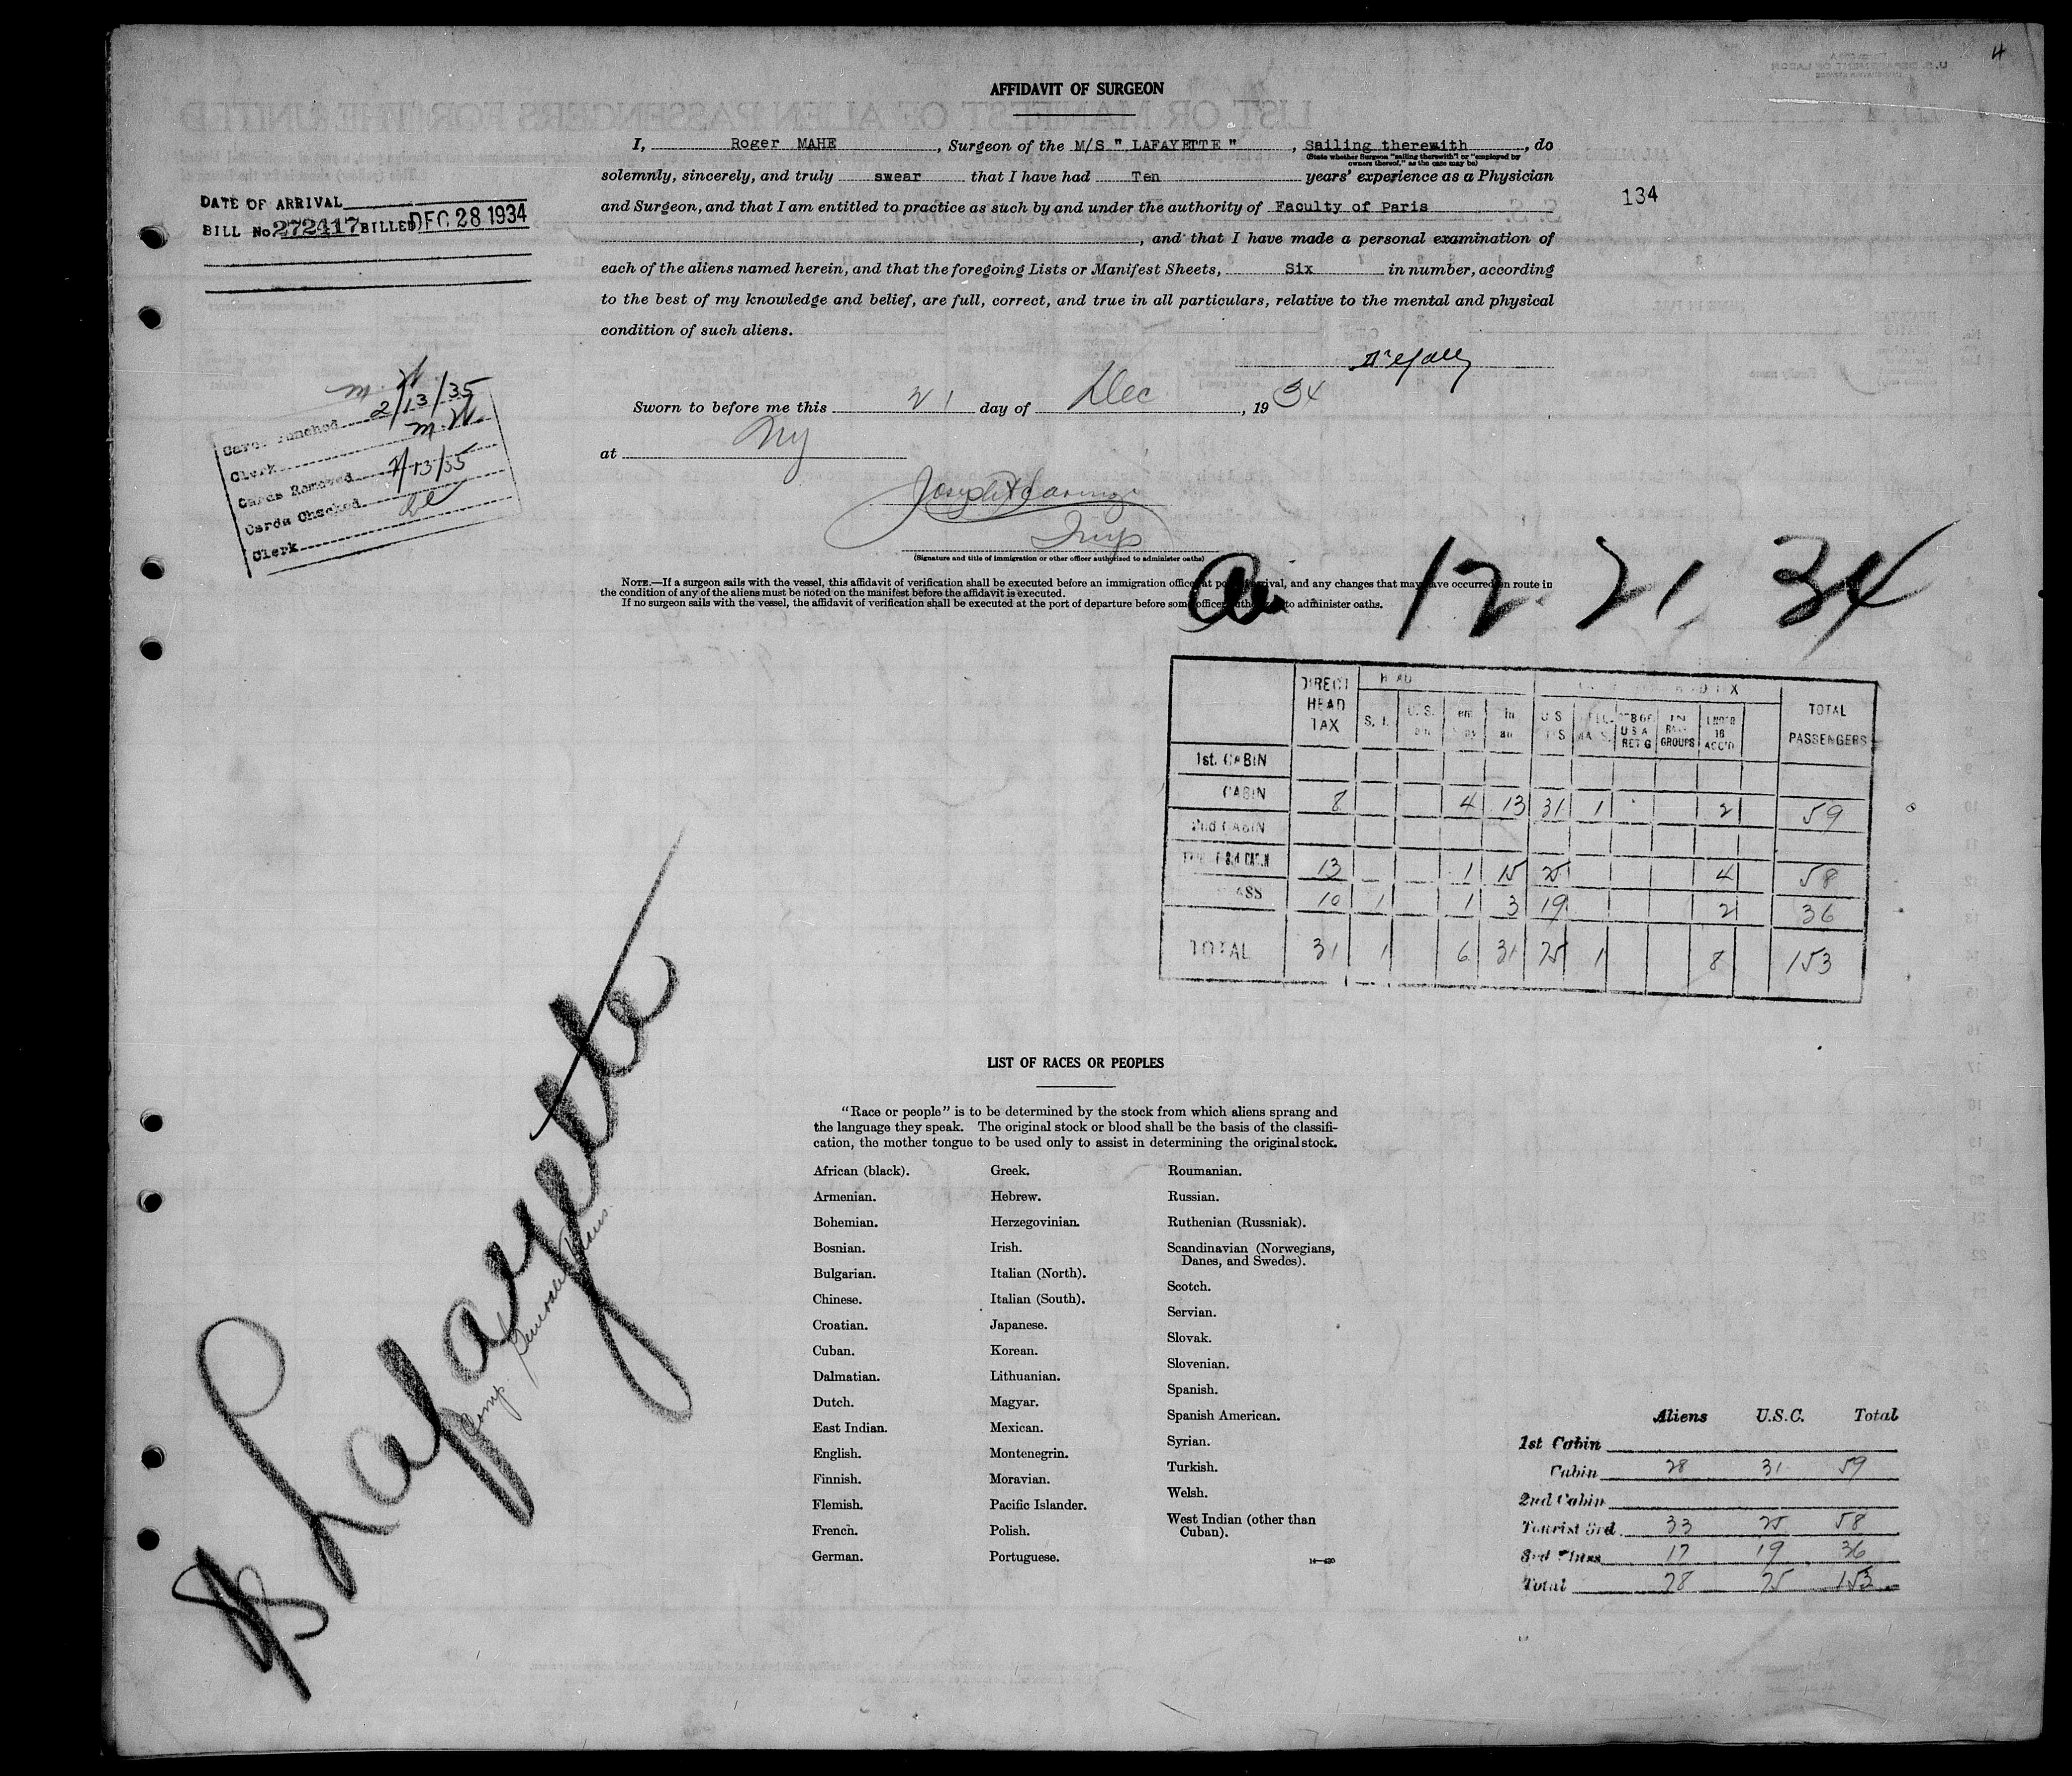 4
AFFIDAVIT OF SURGEON
I, Roger MAHE, Surgeon of the M/S " LAFAYETTE ", Sailing therewith, do
(State whether Surgeon "sailing therewith" or "employed by owners thereof," as the case may be)
solemnly, sincerely, and truly swear that I have had Ten years' experience as a Physician
and Surgeon, and that I am entitled to practice as such by and under the authority of Faculty of Paris
, and that I have made a personal examination of
each of the aliens named herein, and that the foregoing Lists or Manifest Sheets, Six in number, according
to the best of my knowledge and belief, are full, correct, and true in all particulars, relative to the mental and physical
condition of such aliens.
134
DATE OF ARRIVAL
BILL No. 272417 BILLED DEC 28 1934
Sworn to before me this 21 day of Dec, 1934
at NY
Insp
(Signature and title of immigration or other officer authorized to administer oaths)
M. W.
2/13/35
Punched
M. W.
Clerk
Cards Removed 2/13/35
Cards Checked
Clerk
NOTE.—If a surgeon sails with the vessel, this affidavit of verification shall be executed before an immigration officer at port of arrival, and any changes that may have occurred en route in
the condition of any of the aliens must be noted on the manifest before the affidavit is executed.
If no surgeon sails with the vessel, the affidavit of verification shall be executed at the port of departure before some officer authorized to administer oaths.
12 21, 34
DIRECT HEAD TAX
HEAD
TOTAL PASSENGERS
S. I.
U. S.
IN GROUPS
1st. CABIN
CABIN 8 4 13 31 1 2 59
2nd CABIN
3rd CABIN 13 1 15 25 4 58
CLASS 10 1 1 3 19 2 36
TOTAL 31 1 6 31 75 1 8 153
Lafayette
Comp. Generale Trans.
LIST OF RACES OR PEOPLES
"Race or people" is to be determined by the stock from which aliens sprang and
the language they speak. The original stock or blood shall be the basis of the classifi-
cation, the mother tongue to be used only to assist in determining the original stock.
African (black).
Armenian.
Bohemian.
Bosnian.
Bulgarian.
Chinese.
Croatian.
Cuban.
Dalmatian.
Dutch.
East Indian.
English.
Finnish.
Flemish.
French.
German.
Greek.
Hebrew.
Herzegovinian.
Irish.
Italian (North).
Italian (South).
Japanese.
Korean.
Lithuanian.
Magyar.
Mexican.
Montenegrin.
Moravian.
Pacific Islander.
Polish.
Portuguese.
Roumanian.
Russian.
Ruthenian (Russniak).
Scandinavian (Norwegians,
Danes, and Swedes).
Scotch.
Servian.
Slovak.
Slovenian.
Spanish.
Spanish American.
Syrian.
Turkish.
Welsh.
West Indian (other than
Cuban).
14—430
Aliens U.S.C. Total
1st Cabin
Cabin 28 31 59
2nd Cabin
Tourist 3rd 33 25 58
3rd Class 17 19 36
Total 78 75 153